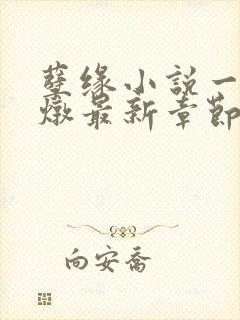 孽缘小説一
燉最新章節
向安喬